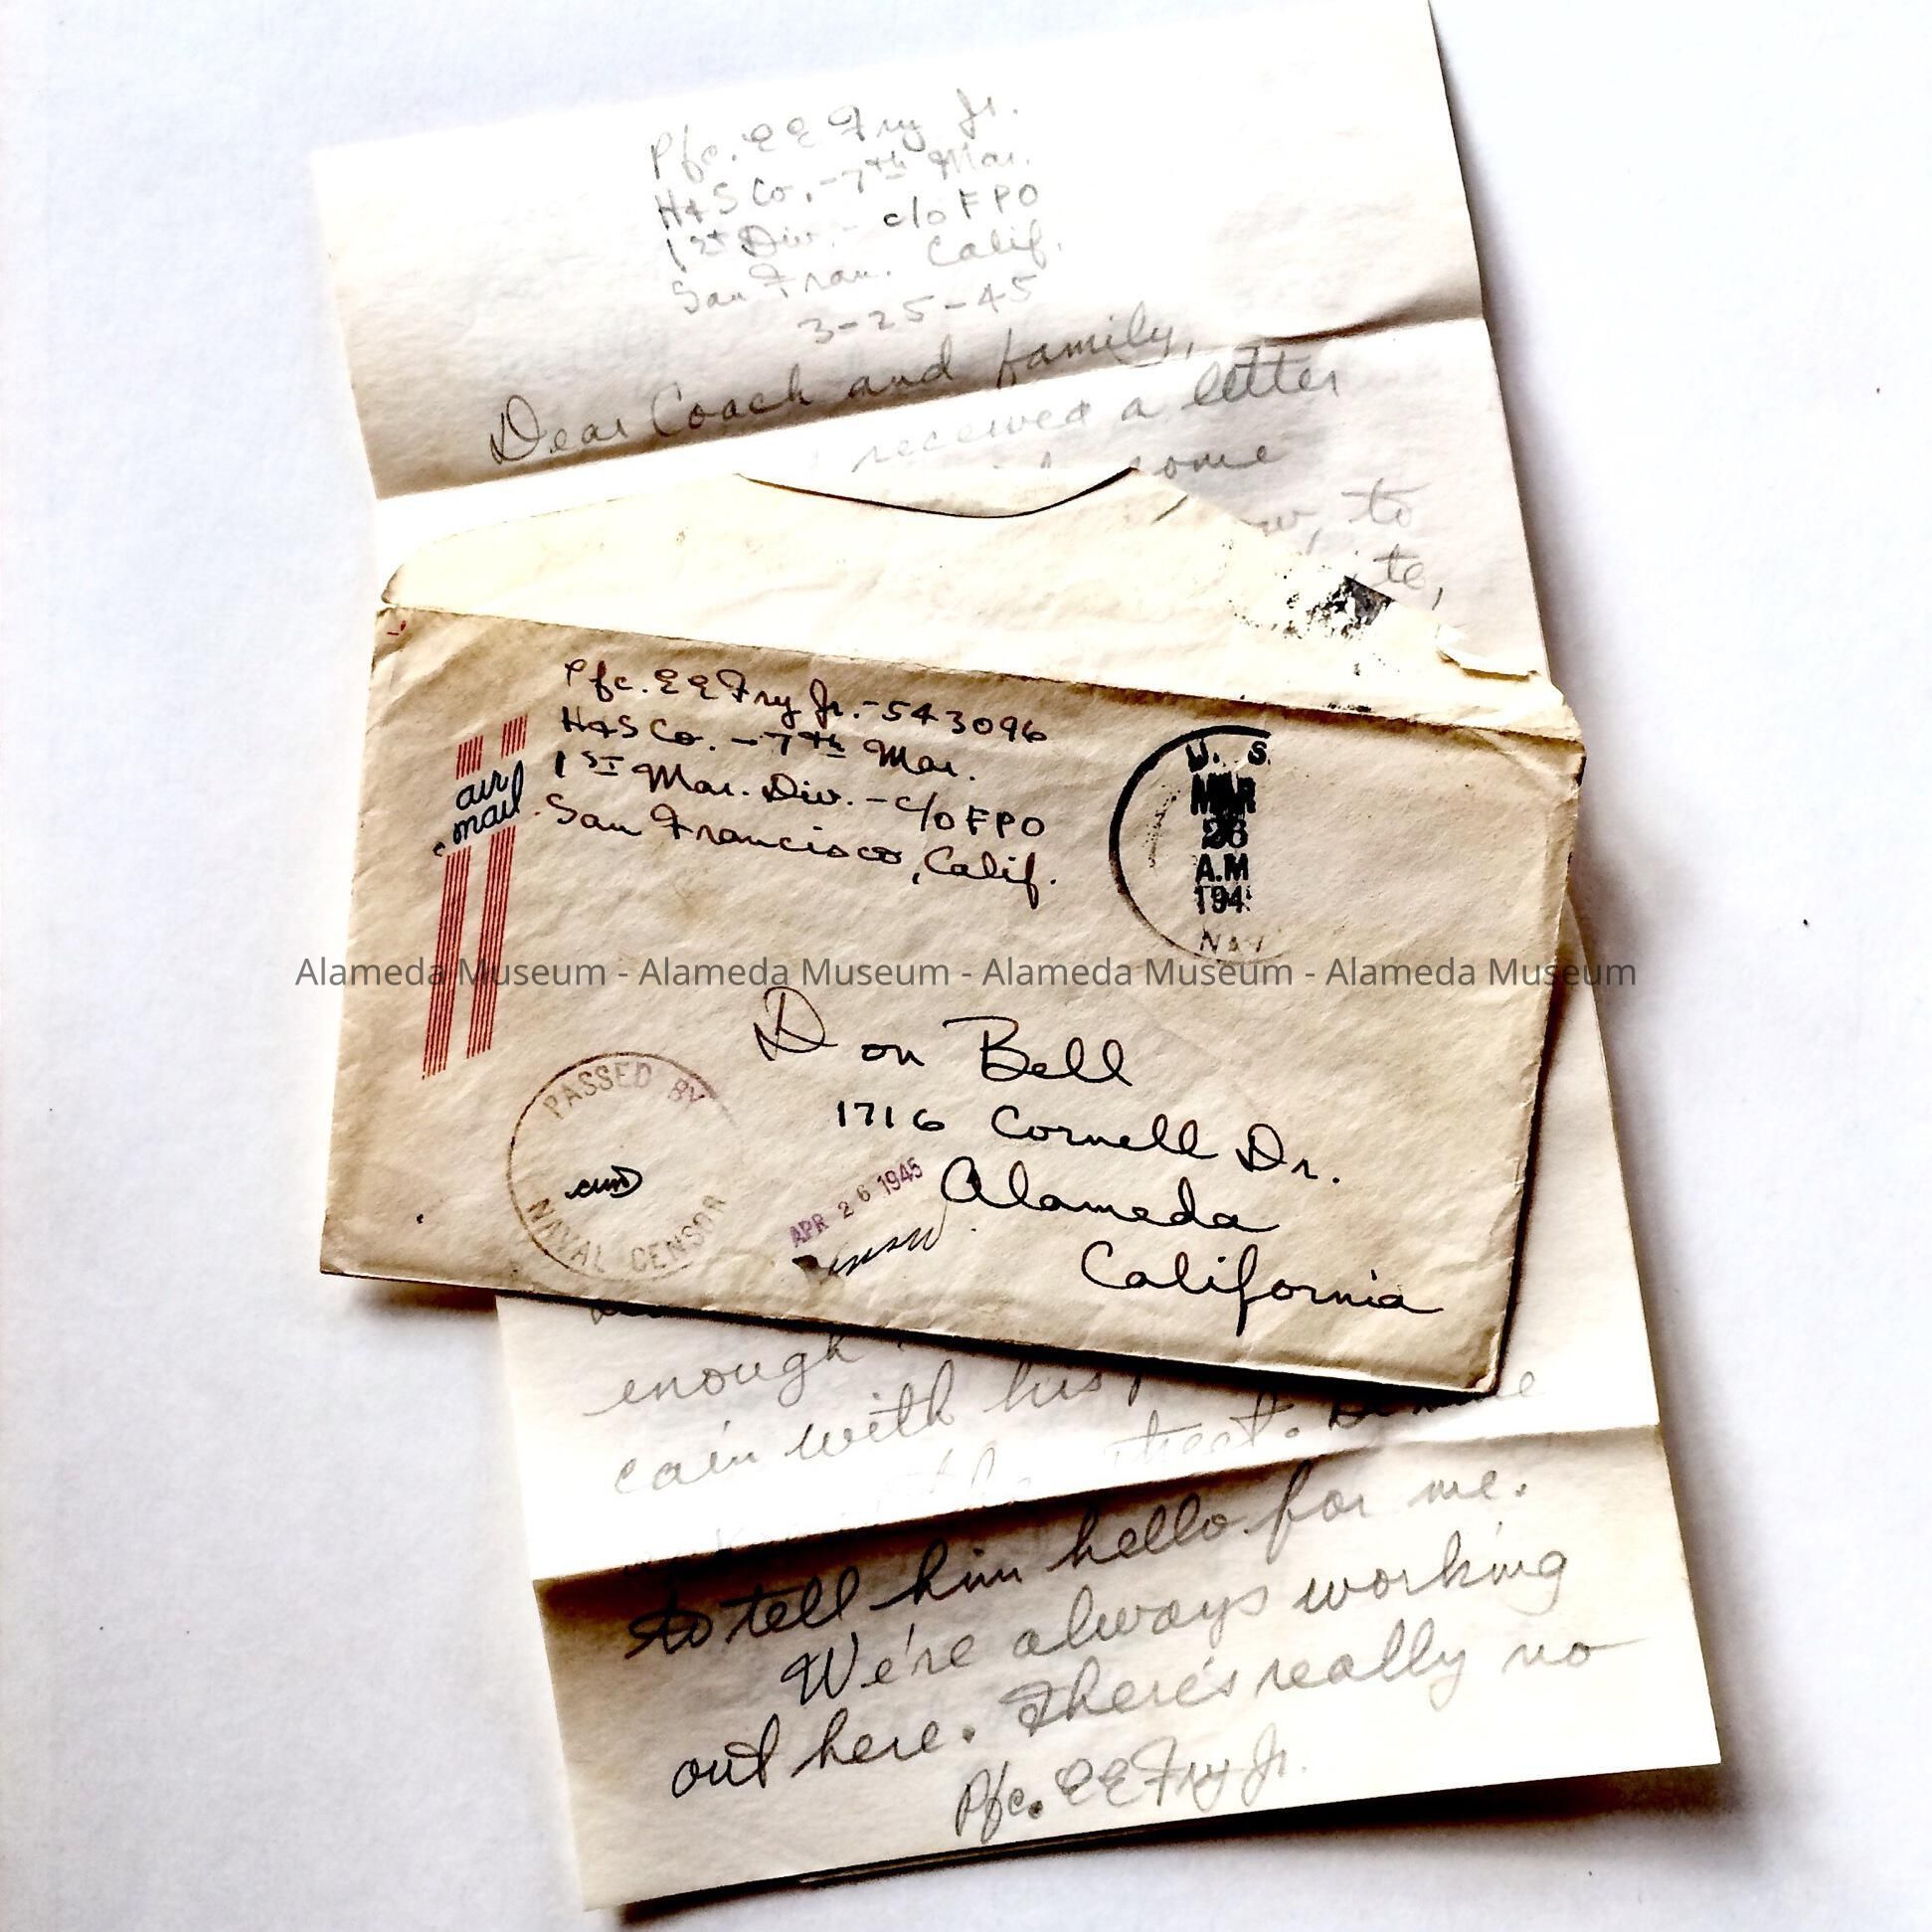 Pfc. E E Fry Jr.
H & S Co. - 7th Mar.
1st Div. - c/o FPO
San Fran. Calif.
3-25-45
Dear Coach and family,
received a letter
some
to
Pfc. E E Fry Jr. - 543096
H & S Co. - 7th Mar.
1st Mar. Div. - c/o FPO
San Francisco, Calif.
air
mail
U. S.
MAR
26
A.M
194
Alameda Museum - Alameda Museum - Alameda Museum - Alameda Museum
Don Bell
1716 Cornell Dr.
Alameda
California
PASSED BY
NAVAL CENSOR
APR 26 1945
enough
cain with his
street.
to tell him hello for me.
We're always working
out here. There's really no
Pfc. E E Fry Jr.